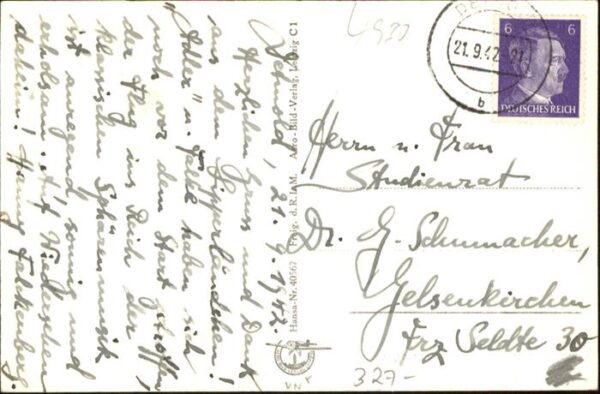 Detmold, 21.9.1942.
Herzlichen Gruss und Dank
aus dem Lipperländchen!
"Adler" u. haben sich
noch vor dem Start getroffen,
der Flug ins Reich der
klassischen Sphärenmusik
ist anregend, sonnig und
erholsam. Auf Wiedersehen
daheim! Falkenberg.
Hansa-Nr. 40567 Fotogr. d. R.L.M. Aero-Bild-Verlag, Leipzig C 1
4930
21.9.42
b
6 6
DEUTSCHES REICH
Herrn u. Frau
Studienrat
Dr. G. Schumacher,
Gelsenkirchen
Frz Seldte 30
327-